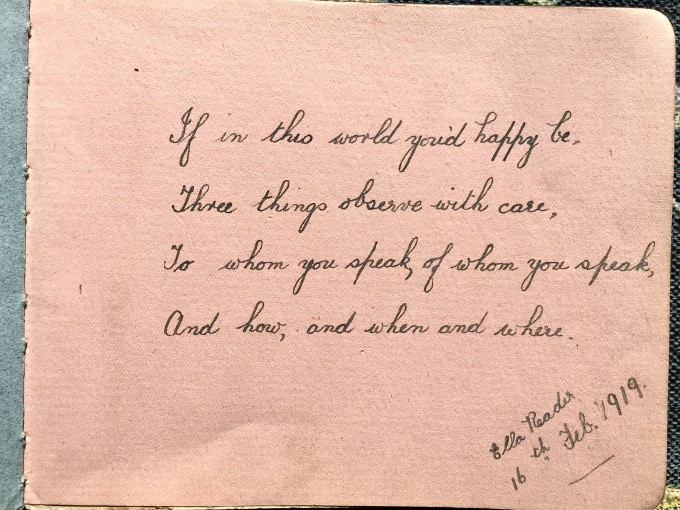 If in this world you'd happy be.
Three things observe with care,
To whom you speak, of whom you speak,
And how, and when and where.
Ella Reader
16th Feb. 1919.